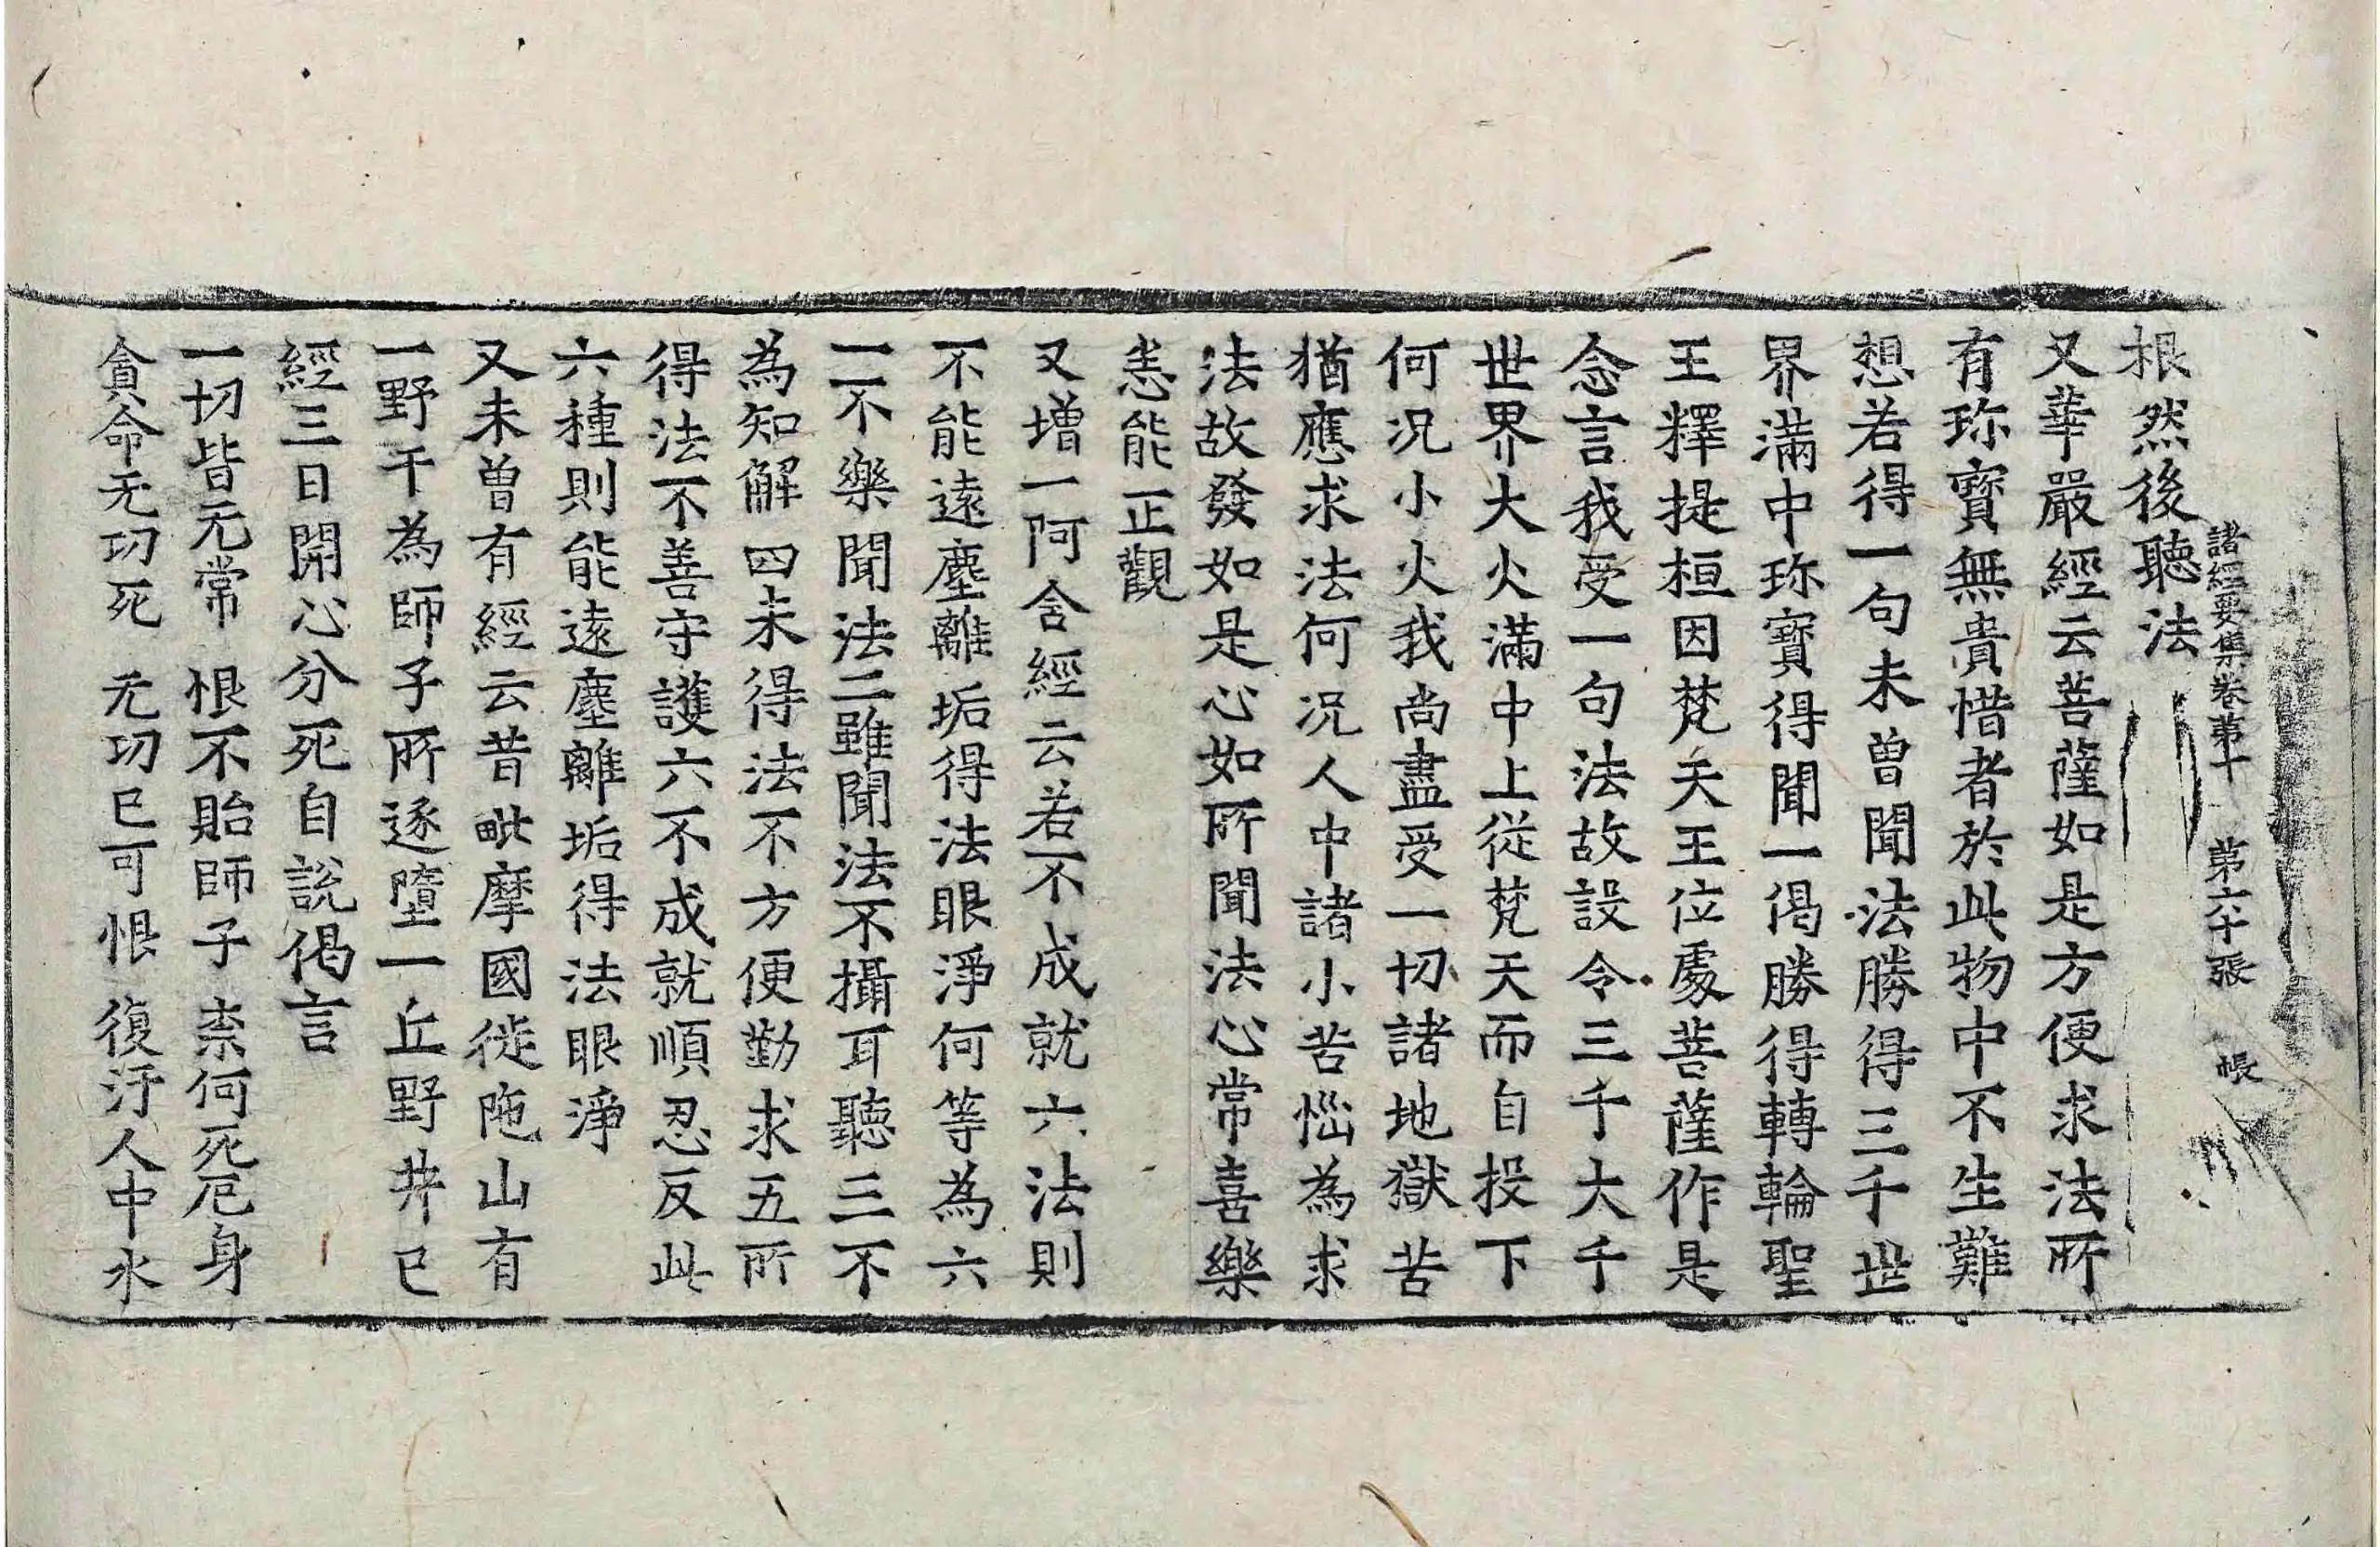 諸經要集卷第十 第六十張 帳
根然後聽法
又華嚴經云菩薩如是方便求法所
有珎寳無貴惜者於此物中不生難
想若得一句未曽聞法勝得三千世
界滿中珎寳得聞一偈勝得轉輪聖
王釋提桓因梵天王位處菩薩作是
念言我受一句法故設令三千大千
世界大火滿中上從梵天而自投下
何况小火我尚盡受一切諸地獄苦
猶應求法何况人中諸小苦惱為求
法故發如是心如所聞法心常喜樂
悉能正觀
又增一阿含經云若不成就六法則
不能遠塵離垢得法眼淨何等為六
一不樂聞法二雖聞法不攝耳聽三不
為知解四未得法不方便勤求五所
得法不善守護六不成就順忍反此
六種則能遠塵離垢得法眼淨
又未曽有經云昔毗摩國徙陁山有
一野干為師子所逐墮一丘野井已
經三日開心分死自說偈言
一切皆无常 恨不貽師子 柰何死厄身
貪命无功死 无功已可恨 復汙人中水